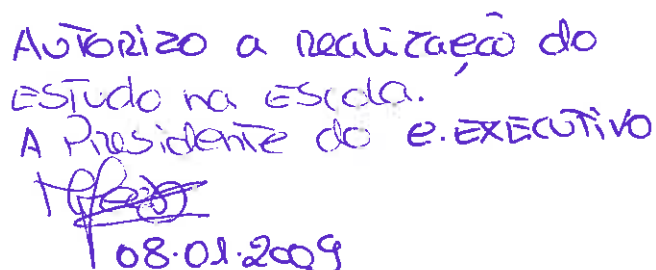 Autorizo a realização do
estudo na escola.
A Presidente do C. Executivo
08.01.2009